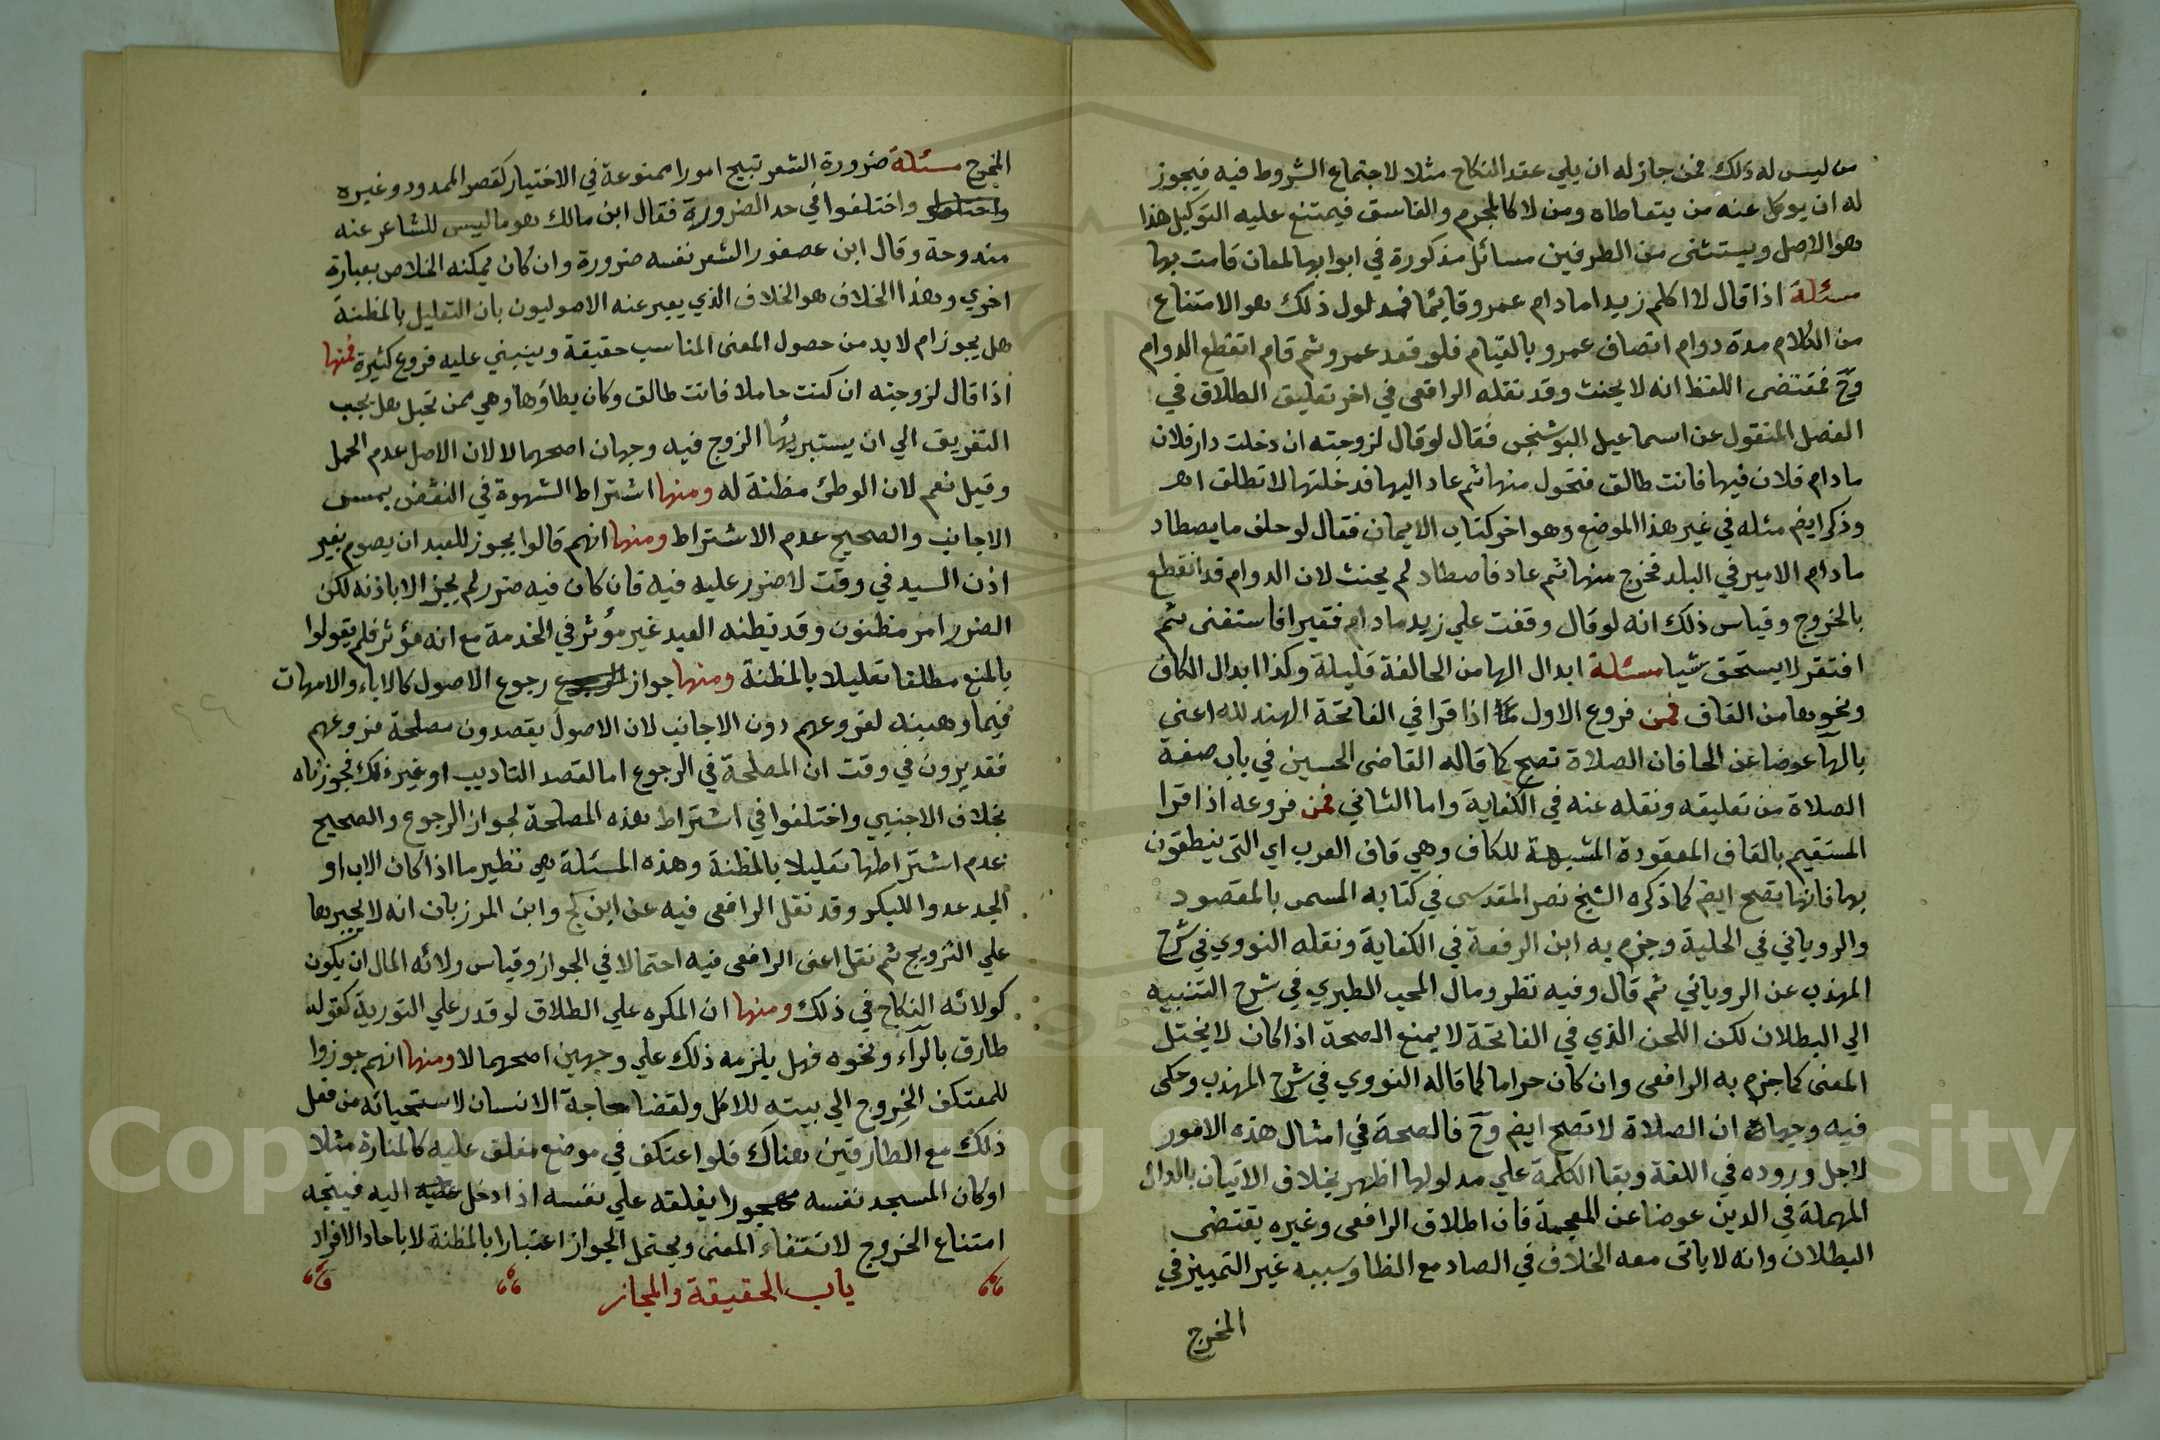 من ليس له ذلك فمن جاز له ان يلي عقد النكاح مثلا لاجتماع الشروط فيه فيجوز
له ان يوكل عنه من يتعاطاه ومن لا كالمجرم والفاسق فيمتنع عليه التوكيل هذا
هو الاصل ويستثنى من الطرفين مسائل مذكورة في ابوابها لمعان قامت بها
مسئلة اذا قال لا اكلم زيدا مادام عمرو قايما فمدلول ذلك هو الامتناع
من الكلام مدة دوام اتصاف عمرو بالقيام فلو قعد عمرو ثم قام انقطع الدوام
وح فمقتضى اللفظ انه لا يحنث وقد نقله الرافعي في اخر تعليق الطلاق في
الفصل المنقول عن اسماعيل البوشنجي فقال لو قال لزوجته ان دخلت دار فلان
مادام فلان فيها فانت طالق فتحول منها ثم عاد اليها فدخلتها لا تطلق اهـ
وذكر ايض مثله في غير هذا الموضع وهو اخر كتاب الايمان فقال لو حلف ما يصطاد
مادام الامير في البلد فخرج منها ثم عاد فاصطاد لم يحنث لان الدوام قد انقطع
بالخروج وقياس ذلك انه لو قال وقفت علي زيد مادام فقيرا فاستغنى ثم
افتقر لا يستحق شيا مسئلة ابدال الها من الحا لغة قليلة وكذا ابدال الكاف
ونحوها من القاف فمن فروع الاول ما اذا قرا في الفاتحة الهمد لله اعني
بالهآ عوضا عن الحا فان الصلاة تصح كما قاله القاضى الحسين في باب صفة
الصلاة من تعليقه ونقله عنه في الكفاية واما الثاني فمن فروعه اذا قرا
المستقيم بالقاف المعقودة المشبهة للكاف وهي قاف العرب اي التى ينطقون
بها فانها تصح ايض كما ذكره الشيخ نصر المقدسي في كتابه المسمى بالمقصود
والروياني في الحلية وجزم به ابن الرفعة في الكفاية ونقله النووي في شرح
المهذب عن الروياني ثم قال وفيه نظر ومال المحب الطبري في شرح التنبيه
الي البطلان لكن اللحن الذي في الفاتحة لا يمنع الصحة اذا كان لا يختل
المعنى كما جزم به الرافعي وان كان حراما كما قاله النووي في شرح المهذب وحكى
فيه وجها ان الصلاة لا تصح ايض وح فالصحة في امثال هذه الامور
لاجل وروده في اللغة وبقا الكلمة علي مدلولها اظهر بخلاف الاتيان بالدال
المهملة في الدين عوضا عن المعجمة فان اطلاق الرافعي وغيره يقتضى
البطلان وانه لا ياتى معه الخلاف في الصاد مع الظا وسببه غير التمييز في
المخرج
المخرج مسئلة ضرورة الشعر تبيح امورا ممنوعة في الاختيار كقصر الممدود وغيره
واختلفوا في حد الضرورة فقال ابن مالك هو ما ليس للشاعر عنه
مندوحة وقال ابن عصفور الشعر نفسه ضرورة وان كان يمكنه الخلاص بعبارة
اخري وهذا الخلاف هو الخلاف الذي يعبر عنه الاصوليون بان التعليل بالمظنة
هل يجوز ام لا بد من حصول المعنى المناسب حقيقة وينبني عليه فروع كثيرة فمنها
اذا قال لزوجته ان كنت حاملا فانت طالق وكان يطاؤها وهي ممن تحبل هل يجب
التفريق الي ان يستبريها الزوج فيه وجهان اصحهما لا لان الاصل عدم الحمل
وقيل نعم لان الوطئ مظنة له ومنها اشتراط الشهوة في النقض بمس
الاجانب والصحيح عدم الاشتراط ومنها انهم قالوا يجوز للعبد ان يصوم بغير
اذن السيد في وقت لا ضرر عليه فيه فان كان فيه ضرر لم يجز الا باذنه لكن
الضرر امر مظنون وقد يظنه العبد غير مؤثر في الخدمة مع انه مؤثر فلم يقولوا
بالمنع مطلقا تعليلا بالمظنة ومنها جواز رجوع الاصول كالاباء والامهات
فيما وهبنه لفروعهم دون الاجانب لان الاصول يقصدون مصلحة فروعهم
فقد يرون في وقت ان المصلحة في الرجوع اما لقصد التاديب او غير ذلك فجوزناه
بخلاف الاجنبي واختلفوا في اشتراط هذه المصلحة لجواز الرجوع والصحيح
عدم اشتراطها تعليلا بالمظنة وهذه المسئلة هي نظير ما اذا كان الاب او
الجد عدوا للبكر وقد نقل الرافعي فيه عن ابن كج وابن المرزبان انه لا يجبرها
علي التزويج ثم نقل اعنى الرافعي فيه احتمالا في الجواز وقياس ولائه المال ان يكون
كولائه النكاح في ذلك ومنها ان المكره علي الطلاق لو قدر علي التورية كقوله
طارق بالرآء ونحوه فهل يلزمه ذلك علي وجهين اصحهما لا ومنها انهم جوزوا
للمعتكف الخروج الي بيته للاكل ولقضا حاجة الانسان لاستحيائه من فعل
ذلك مع الطارقين هناك فلو اعتكف في موضع مغلق عليه كالمنارة مثلا
او كان المسجد نفسه مهجورا يغلقه علي نفسه اذا دخل اليه فيتجه
امتناع الخروج لانتفاء المعنى ويحتمل الجواز اعتبارا بالمظنة لا باحاد الافراد
باب الحقيقة والمجاز